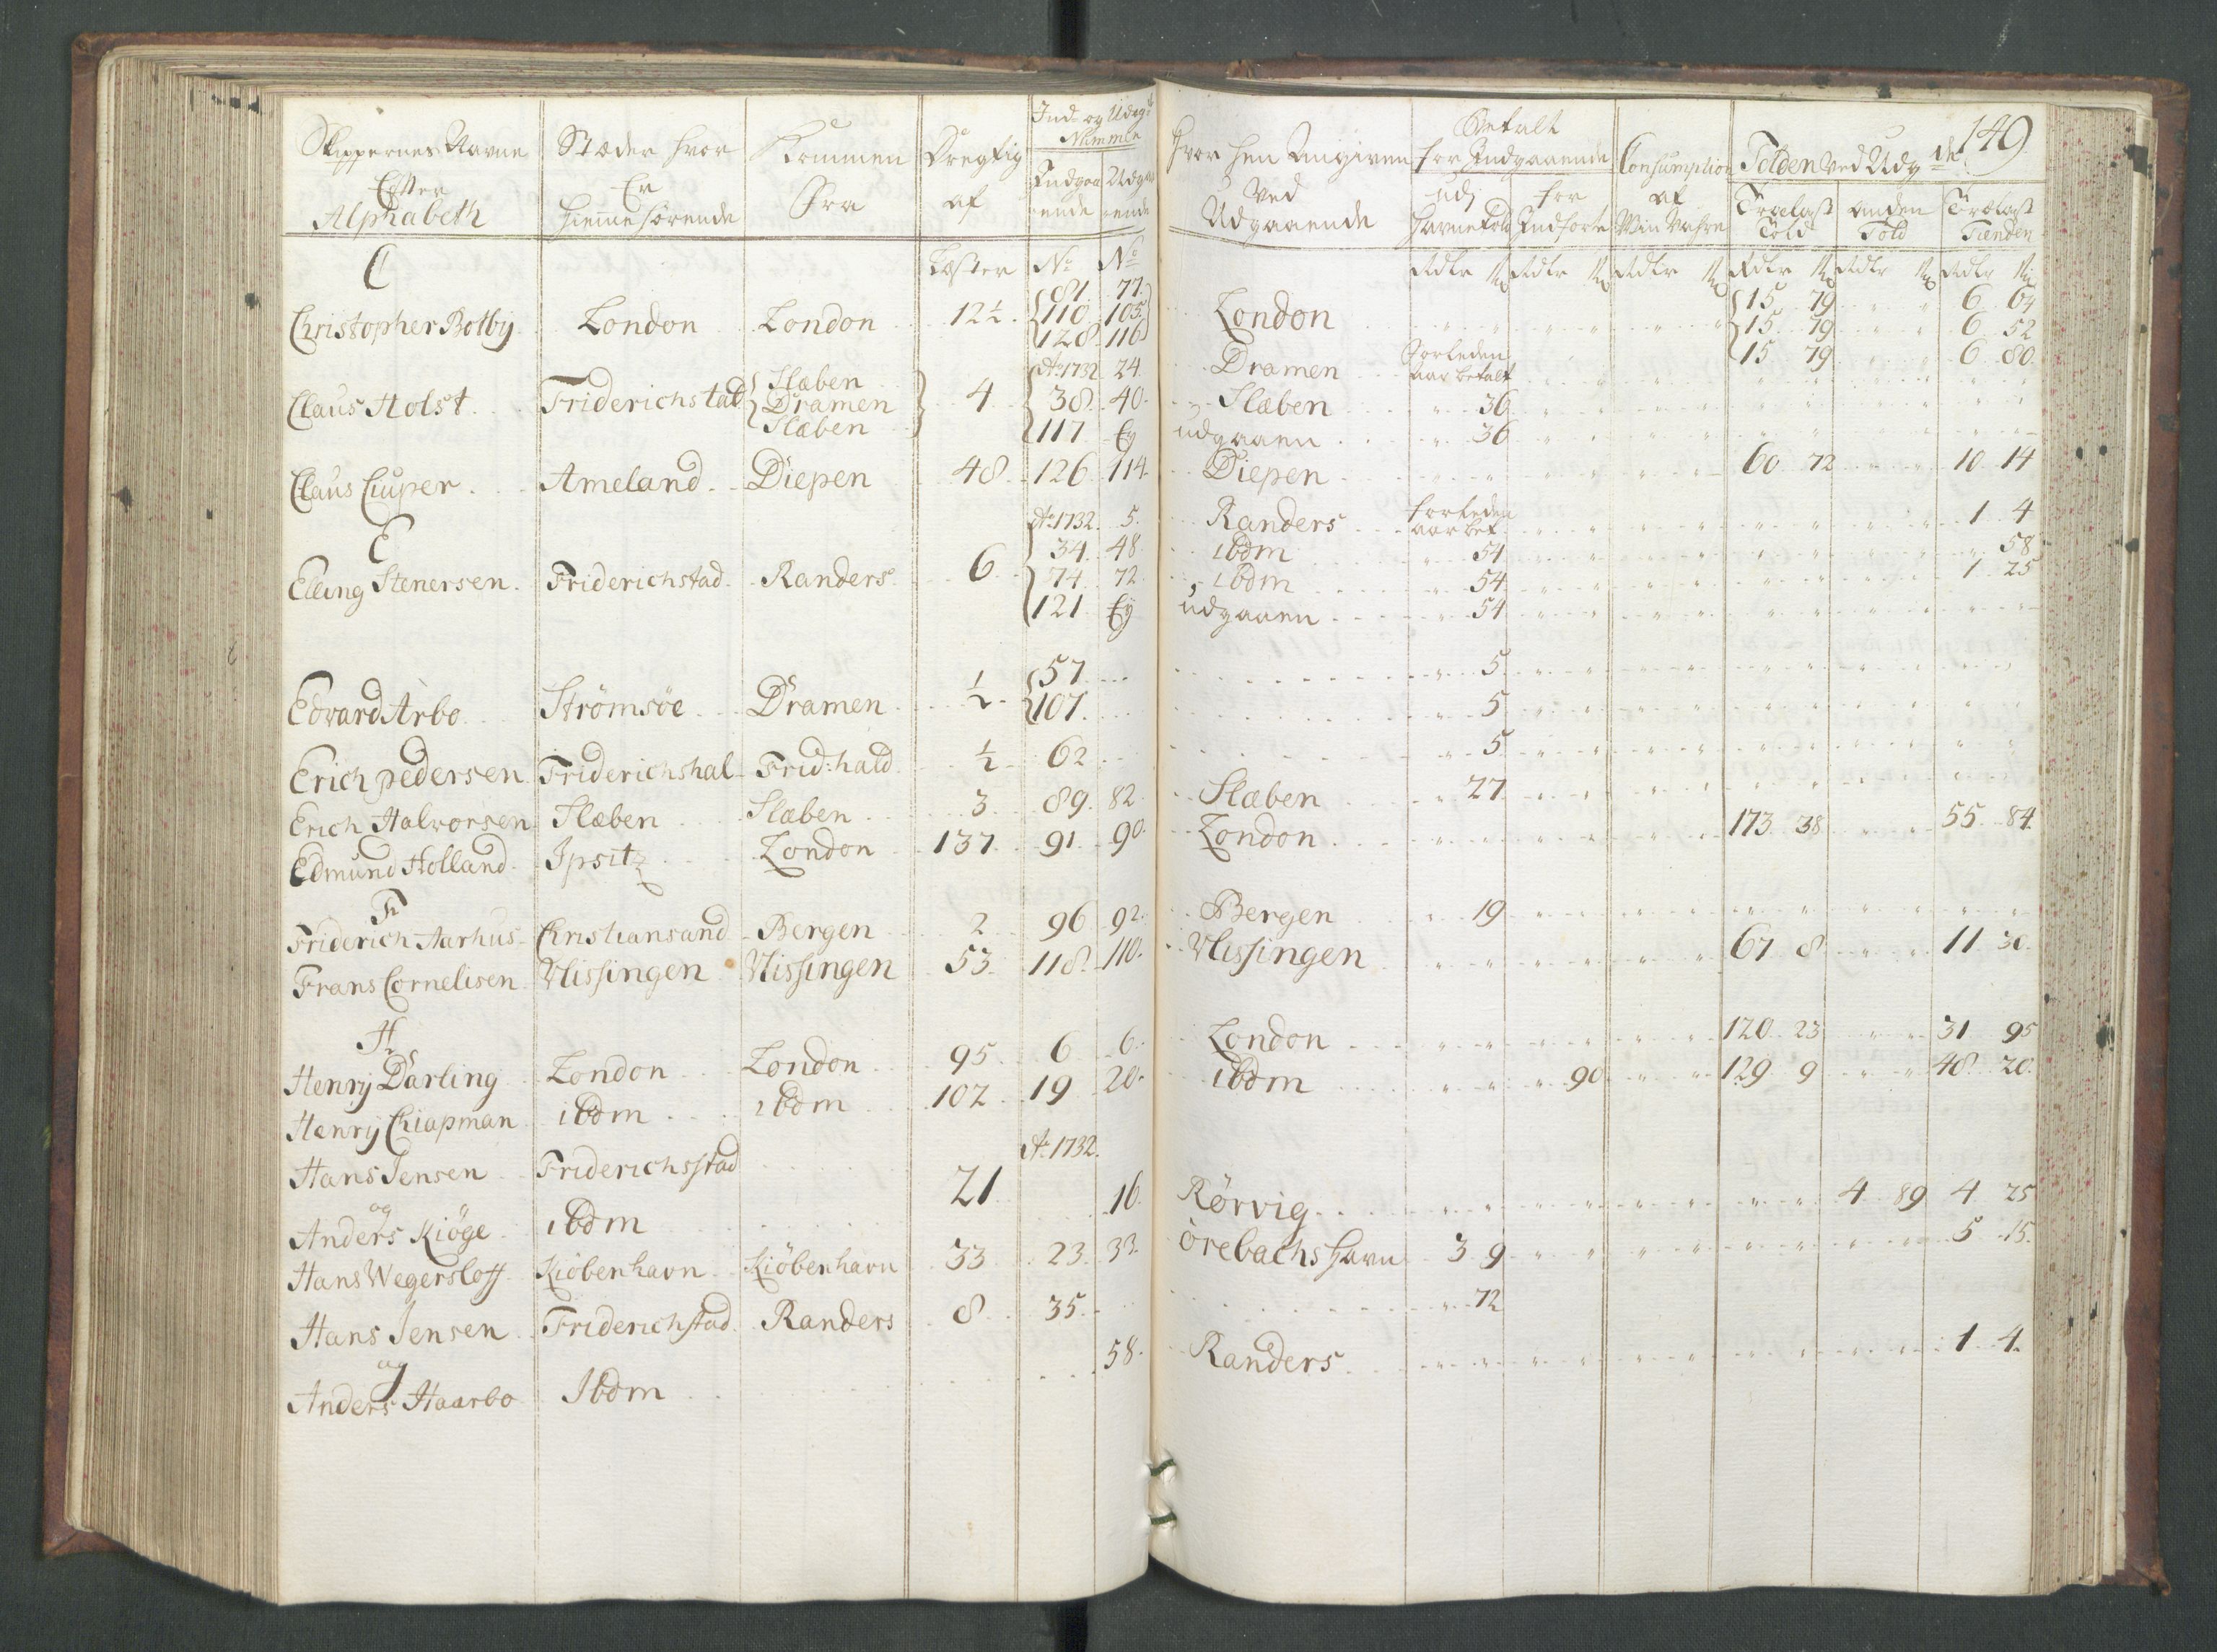 149
Skippernes Navne Efter Alphabeth | Stæder hvor Er hiemehörende | Kommen Fra | Dregtig af | Ind- og Udg: Nummer | Indgaaende | Udgaaende | Hvor hen Angiven ved Udgaaende | Betalt for Indgaaende | udj Havnetold | for Indförte | Consumption af | Tolden ved Udg: | Trælast Told | anden Told | Trælast Tienden
C | Læster | No | No | Rdlr | Rdlr | Rdlr | Rdlr | Rdlr | Rdlr
Christopher Bolby | London | London | 12½ | 81 | 77 | London | 15 79 | 6 64
110 | 105 | 15 79 | 6 52
128 | 116 | 15 79 | 6 80
Claus Holst | Friderichstad | Slæben | 4 | Ao 1732 | 24 | Dramen | Forleden Aar betalt
Dramen | 38 | 40 | Slæben | 36
Slæben | 117 | Ey | udgaaen | 36
Claus Cuper | Ameland | Diepen | 48 | 126 | 114 | Diepen | 60 72 | 10 14
E
Elling Stenersen | Friderichstad | Randers | 6 | Ao 1732 | 5 | Randers | forleden aar bet | 1 4
34 | 48 | ibdm | 54 | 58
74 | 72 | ibdm | 54 | 1 25
121 | Ey | udgaaen | 54
Edvard Arbo | Strömsöe | Dramen | ½ | 57 | 5
107 | 5
Erich pedersen | Friderichshal | Frid:hald | ½ | 62 | 5
Erich Halvorsen | Slæben | Slæben | 3 | 89 | 82 | Slæben | 27
Edmund Holland | Ipsitz | London | 137 | 91 | 90 | London | 173 38 | 55 84
F
Friderich Aarhus | Christiansand | Bergen | 2 | 96 | 92 | Bergen | 19
Frans Cornelisen | Vlissingen | Vlissingen | 53 | 118 | 110 | Vlissingen | 67 8 | 11 30
H
Henry Darling | London | London | 95 | 6 | 6 | London | 120 23 | 31 95
Henry Chiapman | ibdm | ibdm | 102 | 19 | 20 | ibdm | 90 | 129 9 | 48 20
Hans Jensen | Friderichsstad | Ao 1732
og | 21 | 16 | Rörvig | 4 89 | 4 25
Anders Kiöge | ibdm
Hans Wegersloff | Kiöbenhavn | Kiöbenhavn | 33 | 23 | 33 | örebachs Havn | 3 9 | 5 15
Hans Jensen | Friderichstad | Randers | 8 | 35 | 72
og | 58 | Randers | 1 4
Anders Haarbo | Ibdm